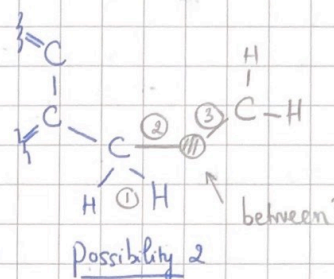 C
H
C ② ③ C - H
C
H ① H between
Possibility 2